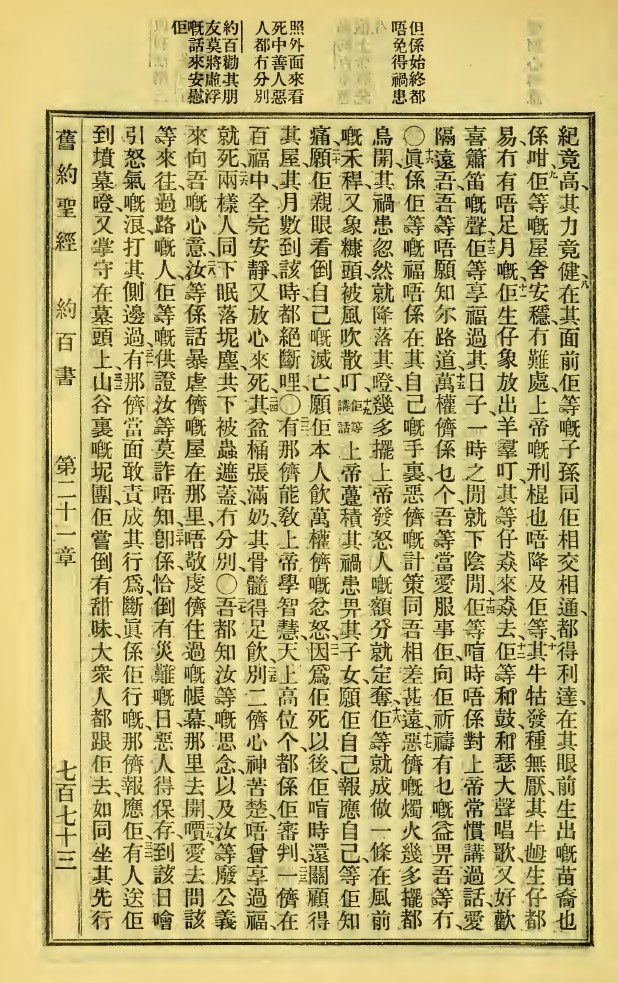 但係始終都
唔免得禍患
照外面來看
死中善人惡
人都有分別
約百勸其朋
友莫將虛浮
嘅話來安慰
佢
紀竟高其力竟健八在其面前佢等嘅子孫同佢相交相通都得利達在其眼前生出嘅苗裔也
係咁九佢等嘅屋舍安穩冇難處上帝嘅刑棍也唔降及佢等十其牛牯發種無厭其牛𡜵生仔都
易冇有唔足月嘅十一佢生仔象放出羊羣叮其等仔猋來猋去十二佢等和鼓和瑟大聲唱歌又好歡
喜簫笛嘅聲十三佢等享福過其日子一時之閒就下陰閒十四佢等喧時唔係對上帝常慣講過話愛
隔遠吾吾等唔願知尔路道十五萬權儕係乜个吾等當愛服事佢向佢祈禱有乜嘅益畀吾等冇
〇十六眞係佢等嘅福唔係在其自己嘅手裏惡儕嘅計策同吾相差甚遠十七惡儕嘅燭火幾多擺都
烏開其禍患忽然就降落其瞪幾多擺上帝發怒人嘅額分就定奪十八佢等就成做一條在風前
嘅禾稈又象糠頭被風吹散叮十九佢等講話上帝薹積其禍患畀其子女願佢自己報應自己等佢知
痛二十願佢親眼看倒自己嘅滅亡願佢本人飲萬權儕嘅忿怒二一因爲佢死以後佢喧時還關顧得
其屋其月數到該時都絕斷哩〇二二有那儕能敎上帝學智慧天上高位个都係佢審判二三一儕在
百福中全完安靜又放心來死二四其盆桶張滿奶其骨髓得足飲二五別二儕心神苦楚唔曾享過福
就死二六兩樣人同下眠落坭塵共下被蟲遮蓋冇分別〇二七吾都知汝等嘅思念以及汝等廢公義
來向吾嘅心意二八汝等係話暴虐儕嘅屋在那里唔敬虔儕住過嘅帳幕那里去開二九嚽愛去問該
等來往過路嘅人佢等嘅供證汝等莫詐唔知三十卽係恰倒有災難嘅日惡人得保存到該日噲
引怒氣嘅浪打其側邊過三一有那儕當面敢責成其行爲斷眞係佢行嘅那儕報應佢三二有人送佢
到墳墓瞪又掌守在墓頭上三三山谷裏嘅坭團佢嘗倒有甜味大衆人都跟佢去如同坐其先行
舊約聖經 約百書 第二十一章 七百七十三